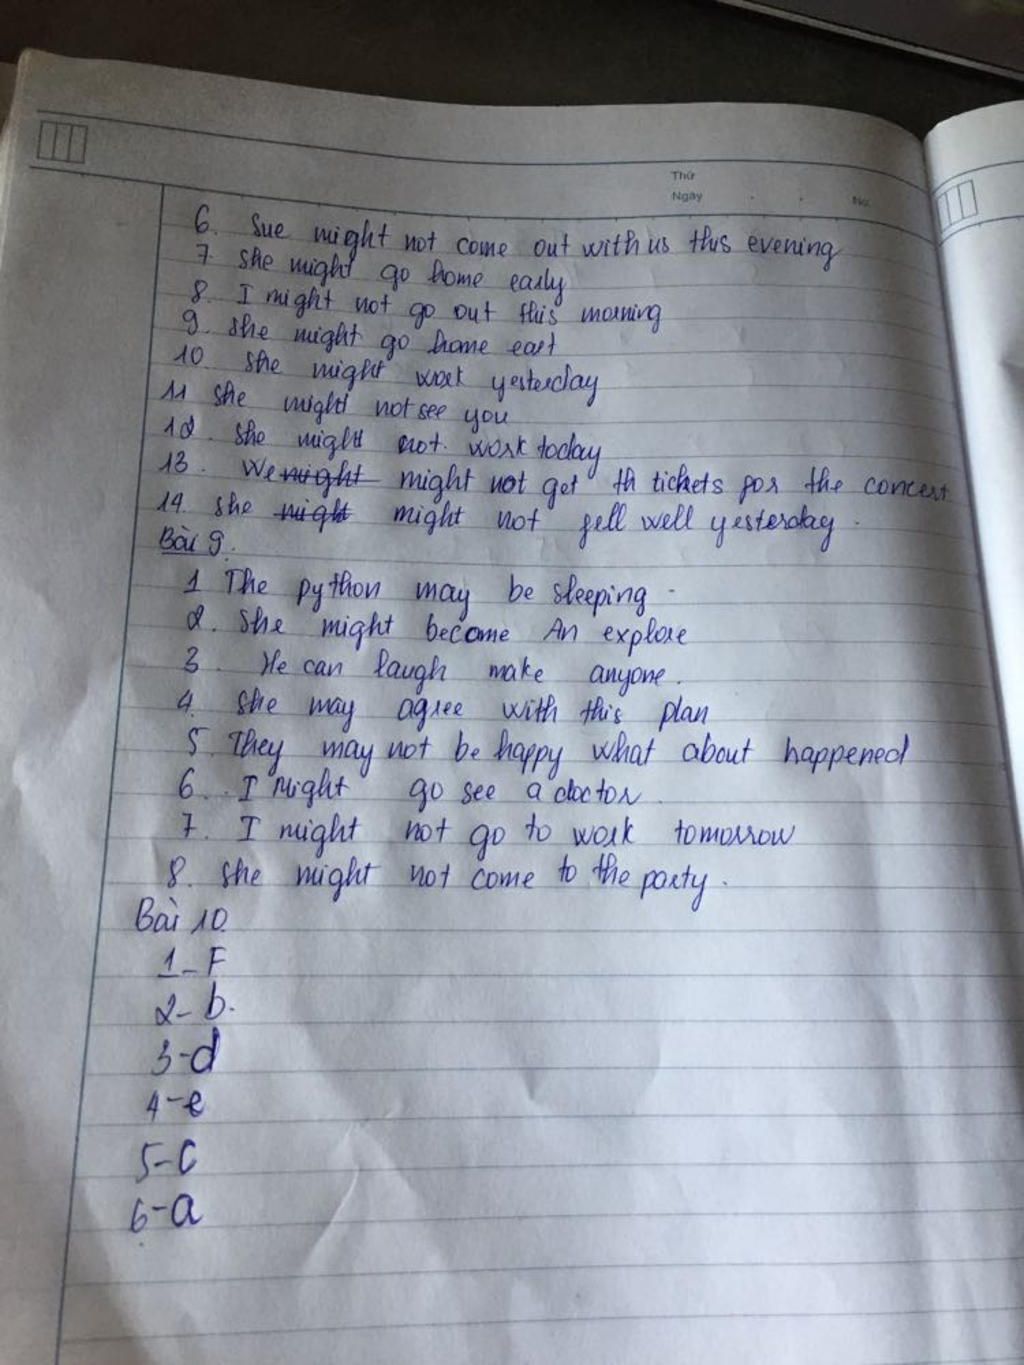 Thứ
Ngày
No.
6. Sue might not come out with us this evening
7. She might go home early
8. I might not go out this morning
9. She might go home eart
10. She might work yesterday
11 She might not see you
12. She might not. work today
13. We might might not get th tickets for the concert
14. She might might not fell well yesterday.
Bài 9.
1 The python may be sleeping.
2. She might become An explore
3. He can laugh make anyone.
4. She may agree with this plan
5. They may not be happy what about happened
6. I Might go see a doctor.
7. I might not go to work tomorrow
8. She might not come to the party.
Bài 10.
1-F
2-b.
3-d
4-e
5-c
6-a